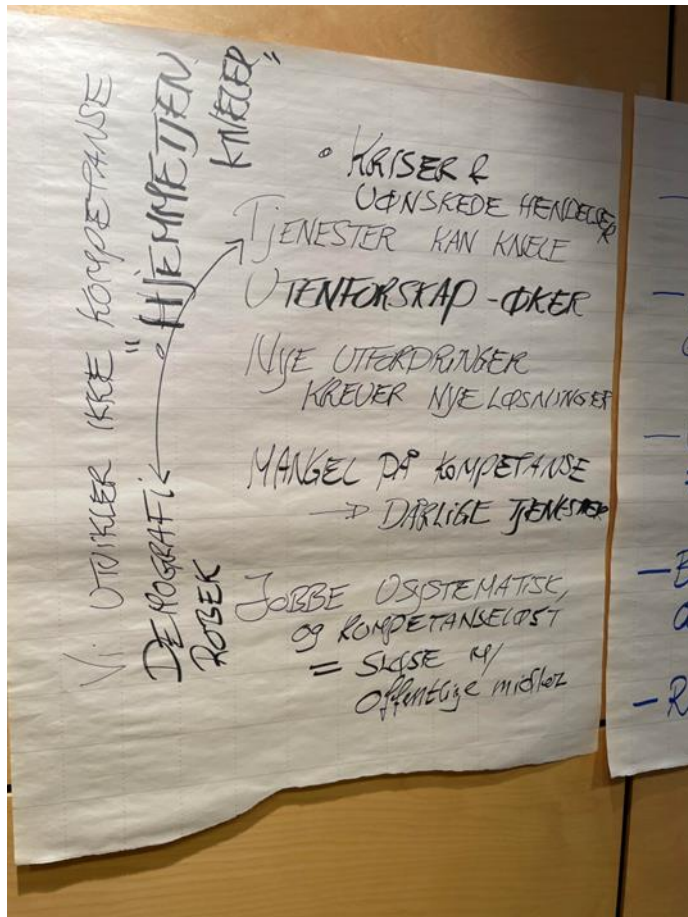 Vi UTVIKLER IKKE KOMPETANSE
DEMOGRAFI
ROBEK
"HJEMMETJEN.
KNELER"
• KRISER &
UØNSKEDE HENDELSER
TJENESTER KAN KNELE
UTENFORSKAP - ØKER
NYE UTFORDRINGER
KREVER NYE LØSNINGER
MANGEL PÅ KOMPETANSE
→ DÅRLIGE TJENESTER
JOBBE USYSTEMATISK,
og KOMPETANSELØST
= SLØSE M/
offentlige midler